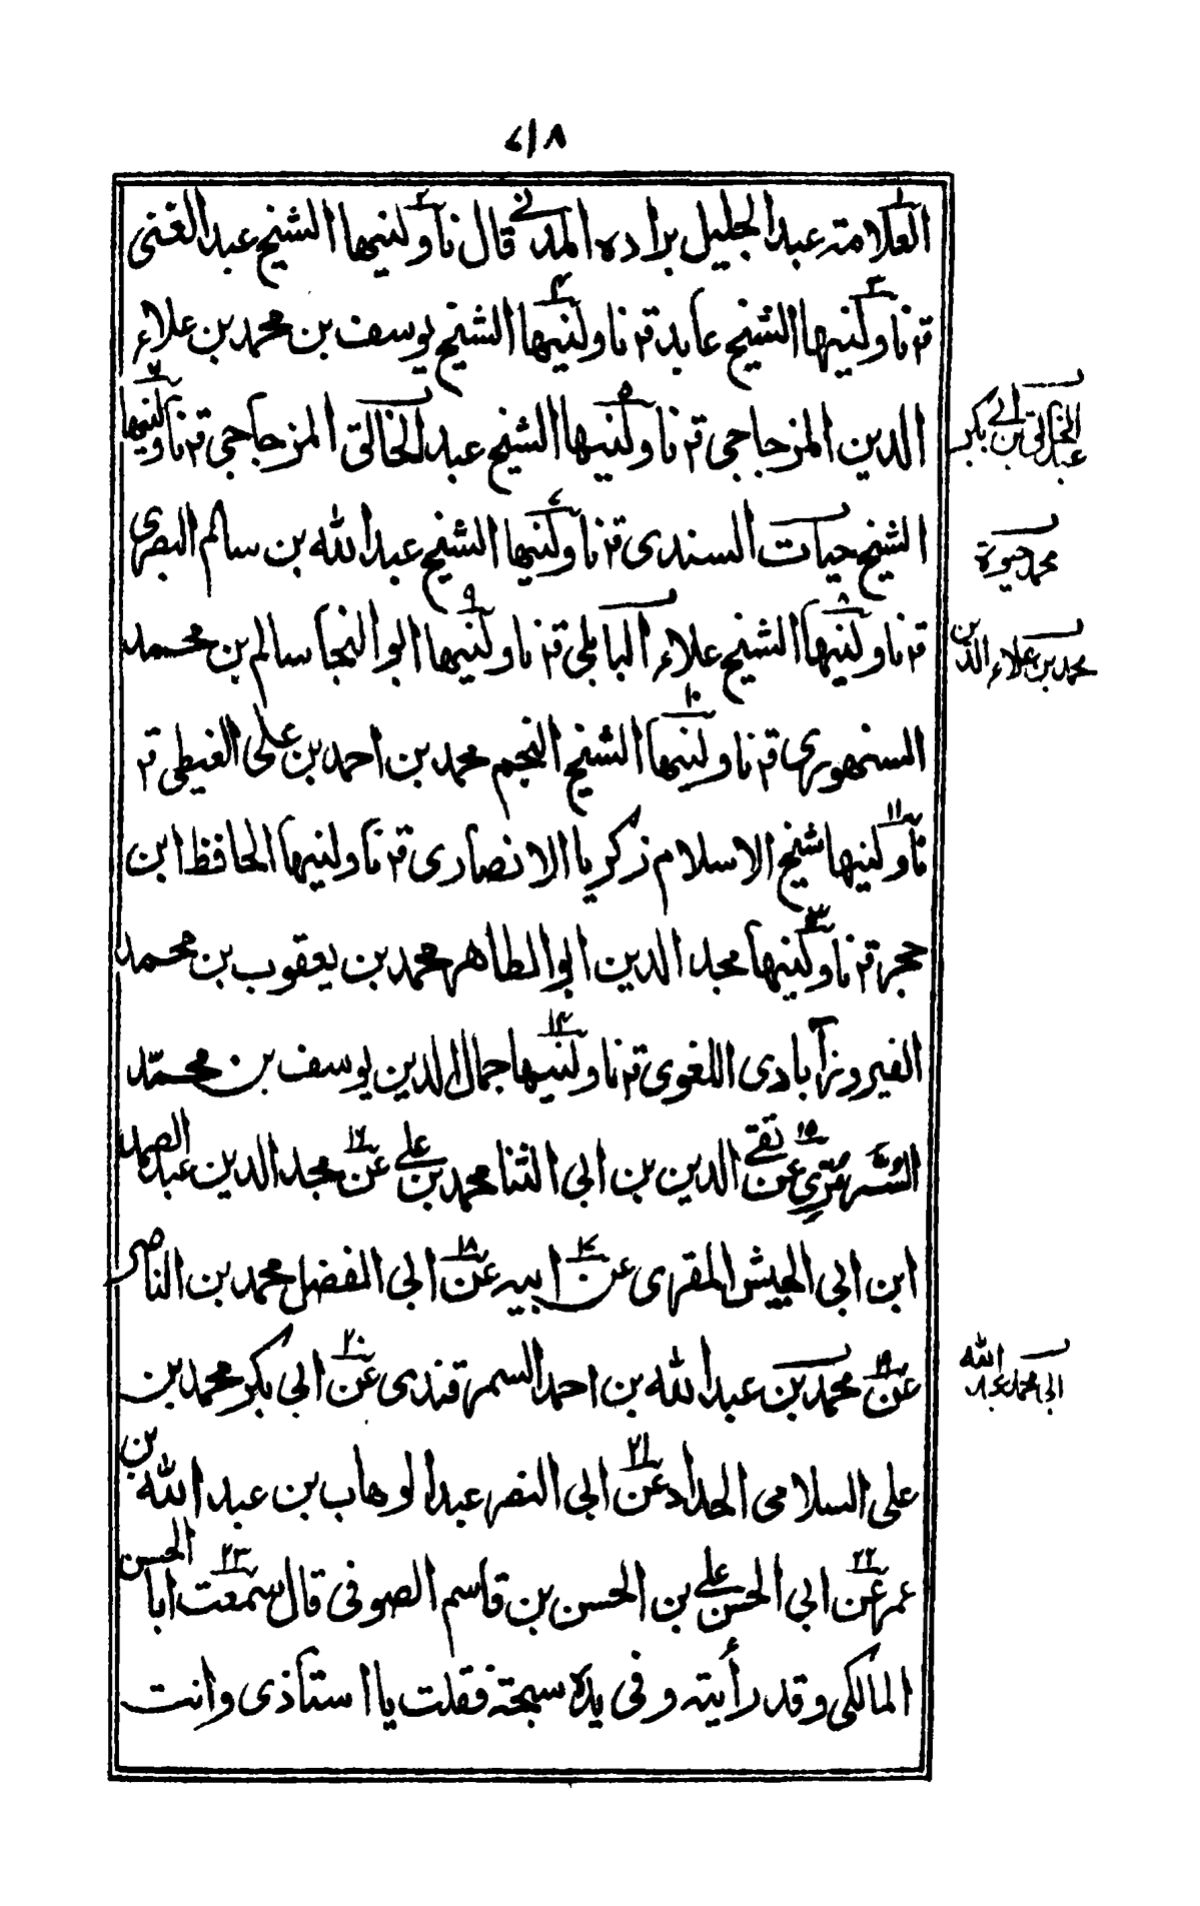 ٧١٨
العلامة عبد الجليل براده المدني قال ناولنيها الشيخ عبد الغني
قر ناولنيها الشيخ عابد قر ناولنيها الشيخ يوسف بن محمد بن علاء
الدين المزجاجي قر ناولنيها الشيخ عبد الخالق المزجاجي قر ناولنيها
الشيخ حيات السندى قر ناولنيها الشيخ عبد الله بن سالم البصرى
قر ناولنيها الشيخ علاء البابلي قر ناولنيها ابو النجا سالم بن محمد
السنهورى قر ناولنيها الشيخ النجم محمد بن احمد بن على الغيطى قر
ناولنيها شيخ الاسلام زكريا الانصارى قر ناولنيها الحافظ ابن
حجر قر ناولنيها مجد الدين ابو الطاهر محمد بن يعقوب بن محمد
الفيروزآبادى اللغوى قر ناولنيها جمال الدين يوسف بن محمّد
السُّرَّمَرِّي عن تقي الدين بن ابي الثنا محمد بن علي عن مجد الدين عبد الصمد
ابن ابي الجيش المقرى عن ابيه عن ابي الفضل محمد بن الناصر
عن محمد بن عبد الله بن احمد السمرقندى عن ابي بكر محمد بن
على السلامى الحداد عن ابي النصر عبد الوهاب بن عبد الله بن
عمر عن ابي الحسن علي بن الحسن بن قاسم الصوفى قال سمعت ابا الحسن
المالكى وقد رأيته وفى يده سبحة فقلت يا استاذى وانت
عبد الخالق بن ابي بكر
محمد حيوة
محمد بن علاء الدين
ابي محمد عبد الله